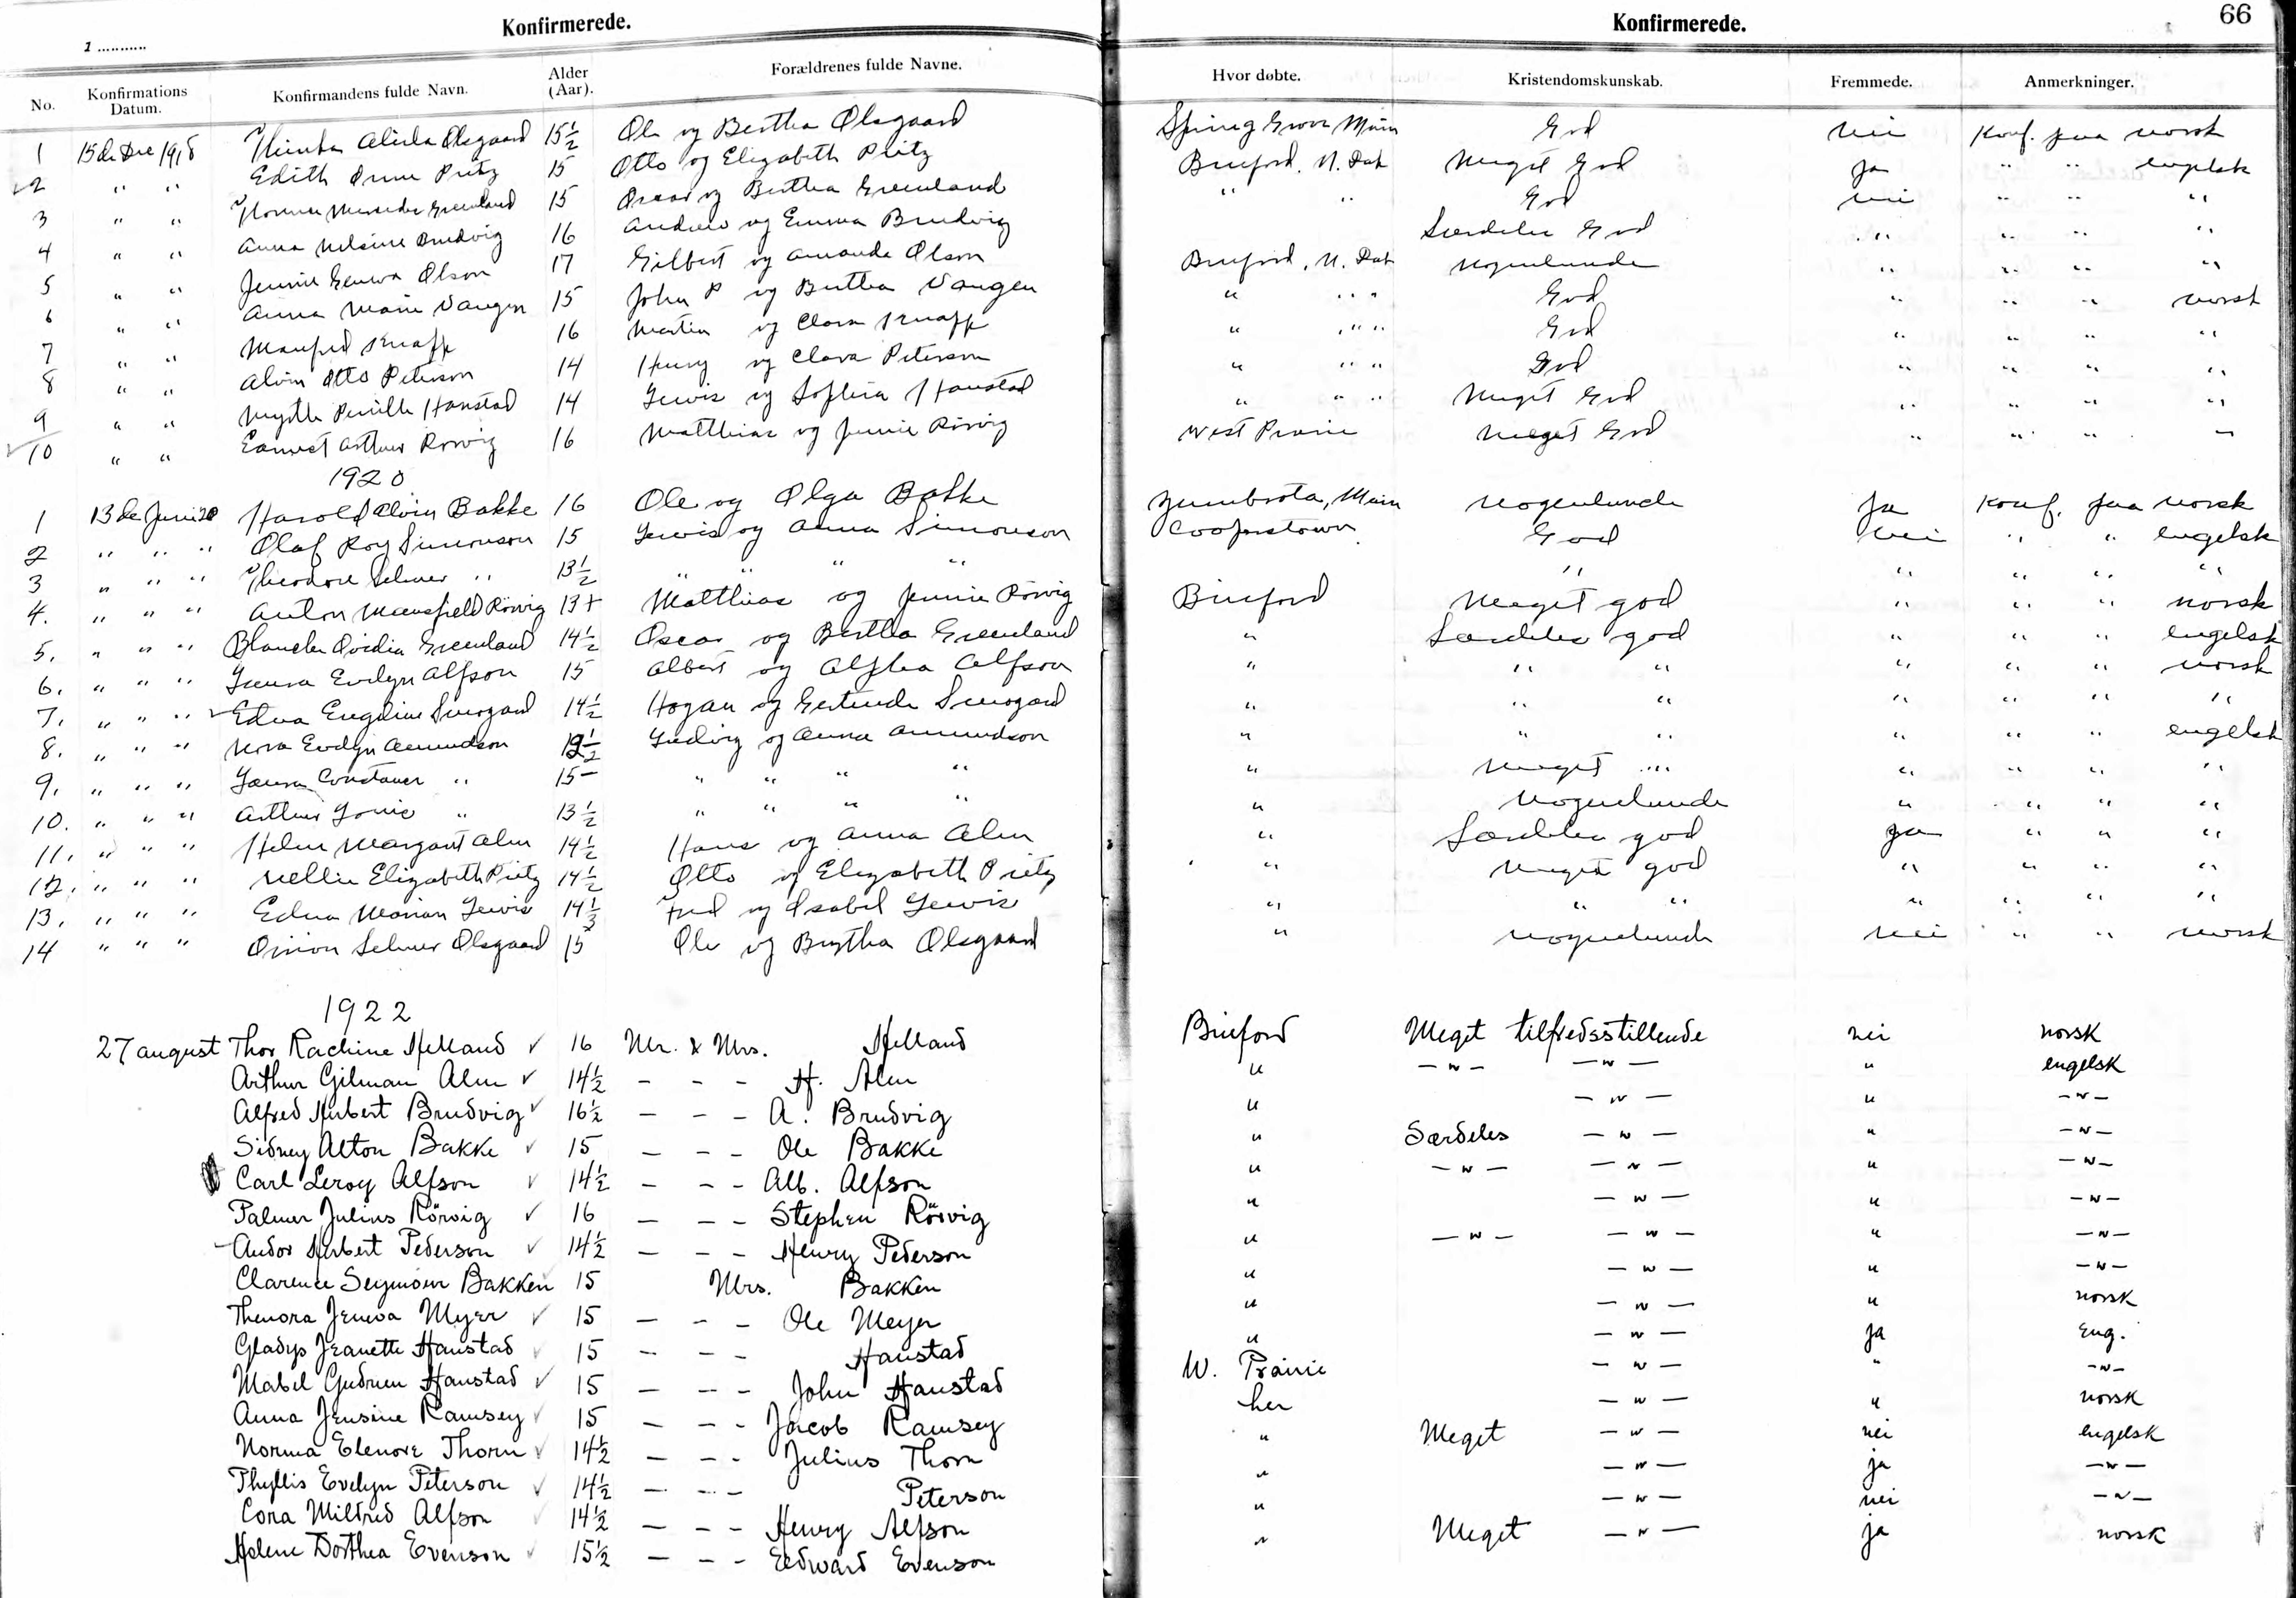 Konfirmerede.
Konfirmerede.
66
1 ...........
No. Konfirmations Datum. Konfirmandens fulde Navn. Alder (Aar). Forældrenes fulde Navne. Hvor døbte. Kristendomskunskab. Fremmede. Anmerkninger.
1 15de Dec 1918 Olsgaard 15½ Ole og Bertha Olsgaard Spring Grove Minn God nei Konf. paa norsk
2 " " Edith Pritz 15 Otto og Elizabeth Pritz Binford, N. Dak Meget God Ja " " engelsk
3 " " Greenland 15 Oscar og Bertha Greenland " " God nei " " "
4 " " Anna Nelsine Brudvig 16 Andrew og Emma Brudvig Særdeles God " " " "
5 " " Jennie Geneva Olson 17 Gilbert og Amanda Olson Binford, N. Dak Nogenlunde " " " "
6 " " Anna Marie Vangen 15 John P og Bertha Vangen " " " God " " " norsk
7 " " Manford Knapp 16 Martin og Clara Knapp " " " God " " " "
8 " " Alvin Otto Peterson 14 Henry og Clara Peterson " " " God " " " "
9 " " Myrtle Pernille Hanstad 14 Lewis og Sophia Hanstad " " " Meget God " " " "
10 " " Earnest Arthur Rørvig 16 Matthias og Jennie Rørvig West Prairie Meget God " " " "
1920
1 13de Juni 20 Harold Alvin Bakke 16 Ole og Olga Bakke Zumbrota, Minn Nogenlunde Ja Konf. paa norsk
2 " " " Olaf Roy Simonson 15 Lewis og Anna Simonson Cooperstown God nei " " engelsk
3 " " " Theodore Selmer " 13½ " " " " " " " " "
4. " " " Anton Mansfield Rörvig 13+ Matthias og Jennie Rörvig Binford Meget god " " " norsk
5. " " " Blanche Ovidia Greenland 14½ Oscar og Bertha Greenland " Særdeles god " " " engelsk
6. " " " Laura Evelyn Alfson 15 Albert og Alpha Alfson " " " " " " norsk
7. " " " Edna Engeline 14½ Hogan og Gertrude " " " " " " "
8. " " " Nora Evelyn Amundson Ludvig og Anna Amundson " " " " " " engelsk
9. " " " Laura Constance " 15 " " " " " Meget " " " " "
10. " " " Arthur " 13½ " " " " " Nogenlunde " " " "
11. " " " Helen Margaret Alm 14½ Hans og Anna Alm " Særdeles god ja " " "
12. " " " Nellie Elizabeth Pritz 14½ Otto og Elizabeth Pritz " Meget god " " " "
13. " " " Edna Marian Lewis 14⅓ Fred og Isabel Lewis " " " " " " "
14 " " " Orion Selmer Olsgaard 15 Ole og Bertha Olsgaard " Nogenlunde nei " " norsk
1922
27 august Thor Rachine Helland ✓ 16 Mr. & Mrs. Helland Binford Meget tilfredsstillende nei norsk
Arthur Gilman Alm ✓ 14½ – – – H. Alm " –"– –"– " engelsk
Alfred Herbert Brudvig ✓ 16½ – – – A. Brudvig " –"– " –"–
Sidney Alton Bakke ✓ 15 – – – Ole Bakke " Særdeles –"– " –"–
Carl Leroy Alfson ✓ 14½ – – – Alb. Alfson " –"– –"– " –"–
Palmer Julius Rörvig ✓ 16 – – – Stephen Rörvig " –"– " –"–
Andor Herbert Pederson ✓ 14½ – – – Henry Pederson " –"– –"– " –"–
Clarence Seymour Bakken 15 Mrs. Bakken " –"– " –"–
Thenora Jeneva Myer ✓ 15 – – – Ole Meyer " –"– " norsk
Gladys Jeanette Hanstad ✓ 15 – – – Hanstad " –"– ja eng.
Mabel Gudrun Hanstad ✓ 15 – – – John Hanstad W. Prairie –"– " –"–
Anna Jensine Ramsey ✓ 15 – – – Jacob Ramsey her –"– " norsk
Norma Elenore Thorn ✓ 14½ – – – Julius Thorn " Meget –"– nei engelsk
Phyllis Evelyn Peterson ✓ 14½ – – – Peterson " –"– ja –"–
Cora Mildred Alfson ✓ 14½ – – – Henry Alfson " –"– nei –"–
Helene Dorthea Evenson ✓ 15½ – – – Edward Evenson " Meget –"– ja norsk